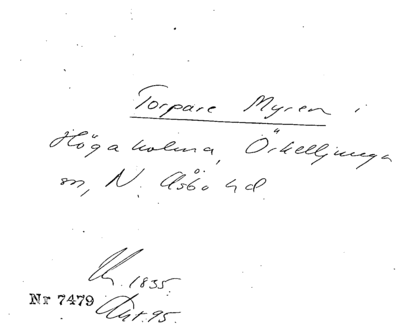 Torpare Myren i
Högaholma, Örkelljunga
sn, N. Åsbo hd.
1835.
Nr 7479
95.